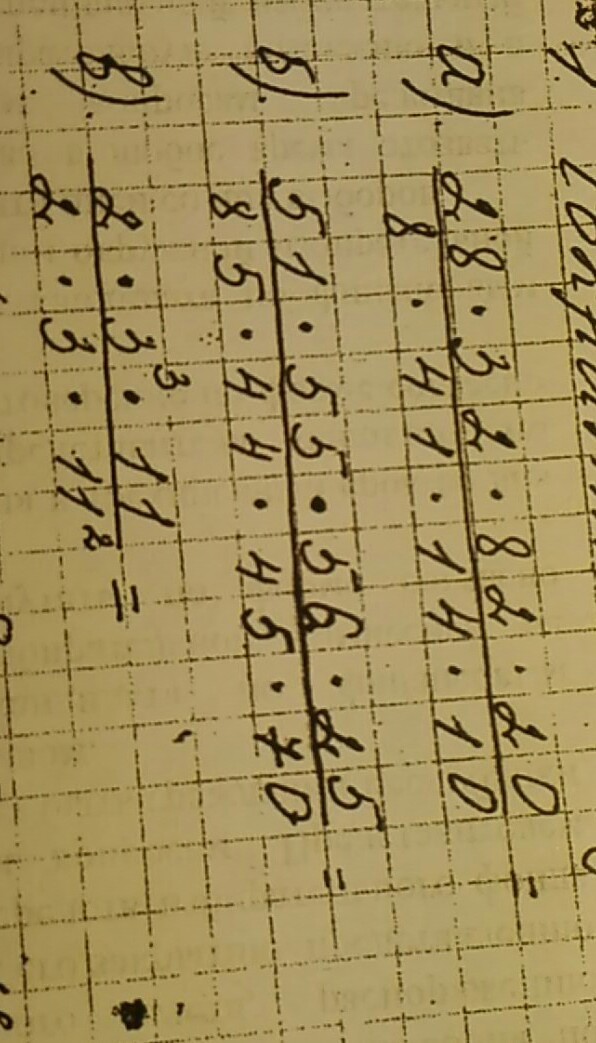 а) 28 · 32 · 82 · 20
8 · 41 · 14 · 10
б) 51 · 55 · 56 · 25 =
85 · 44 · 45 · 70
в) 2 · 3³ · 11 =
2 · 3 · 11²